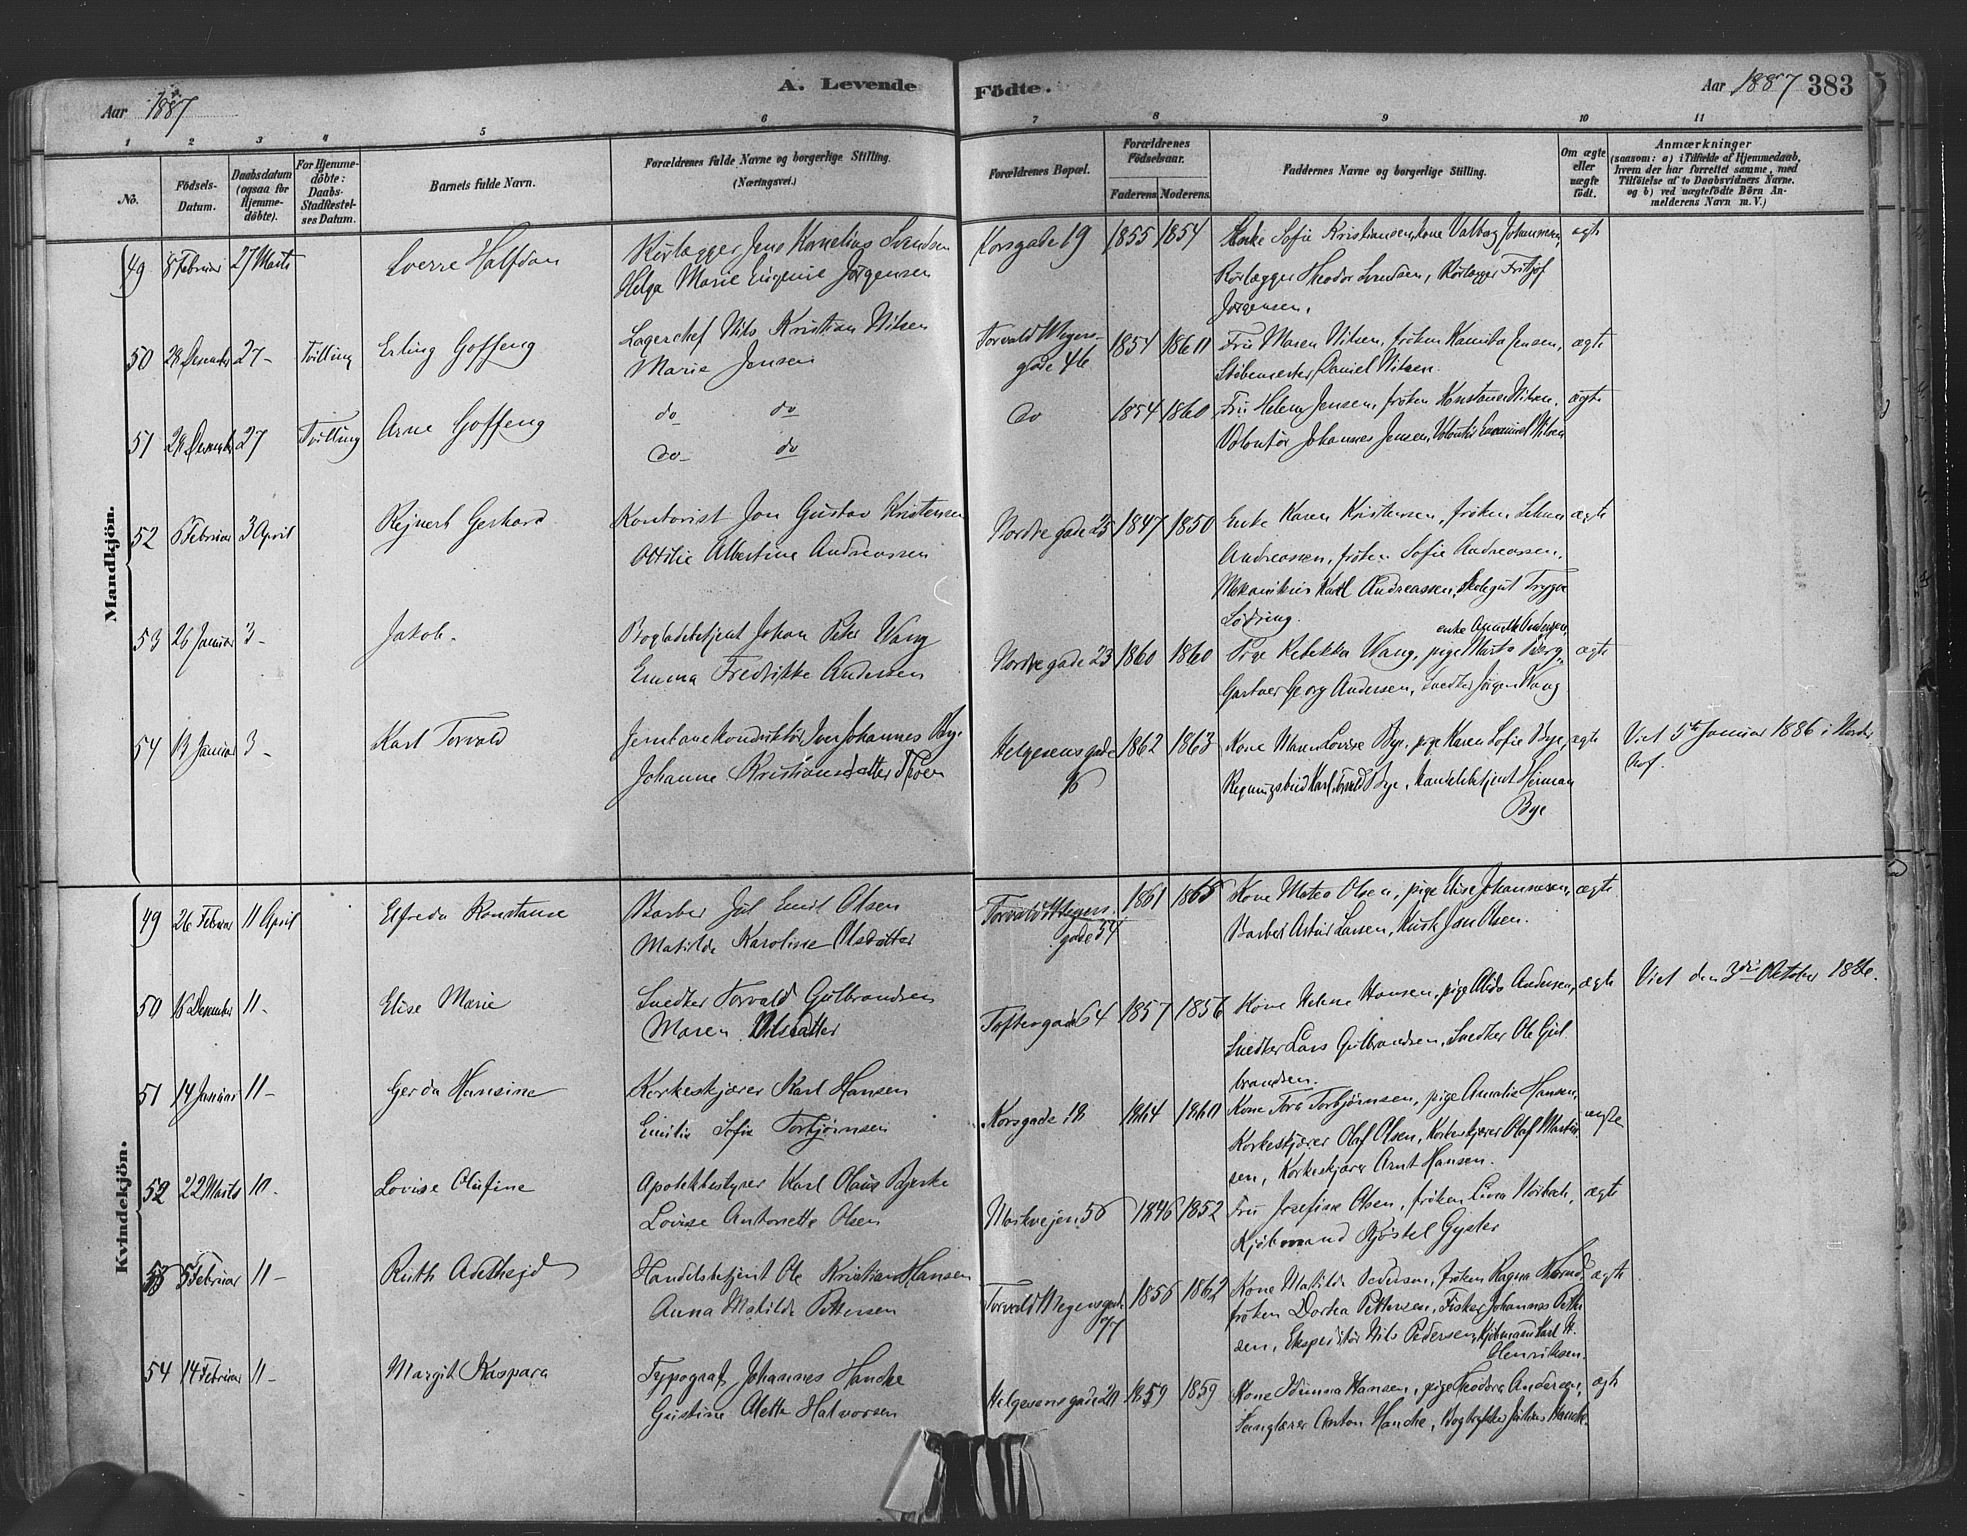 Aar 1887
A. Levende Födte.
Aar 1887 383
1 2 3 4 5 6 7 8 9 10 11
No.
Födsels-Datum.
Daabsdatum (ogsaa for Hjemme-döbte).
For Hjemme-döbte: Daabs-Stadfæstel-ses Datum.
Barnets fulde Navn.
Forældrenes fulde Navne og borgerlige Stilling. (Næringsvei.)
Forældrenes Bopæl.
Forældrenes Födselsaar.
Faderens. Moderens.
Faddernes Navne og borgerlige Stilling.
Om ægte eller uægte födt.
Anmærkninger
(saasom: a) i Tilfælde af Hjemmedaab,
hvem der har forrettet samme, med
Tilföielse af to Daabsvidners Navne.
og b) ved uægtefödte Börn An-
melderens Navn m. V.)
Mandkjön.
49 8 Februar 27 Marts Sverre Halfdan Rörlægger Jens Kornelius Svendsen Korsgade 19 1855 1854 Enke Sofie Kristiansen, kone Valborg Johannesen, ægte
Helga Marie Eugenie Jørgensen Rörlægger Theodor Svendsen, Rörlægger Fritjof
Jørgensen.
50 28 Desember 27 - Tvilling Erling Goffeng Lagerchef Nils Kristian Nilsen Torvald Meyers- 1854 1860 Fru Maren Nilsen, frøken Kamilla Jensen, ægte
Marie Jensen gade 46 Støbemester Daniel Nilsen.
51 28 Desember 27 Tvilling Arne Goffeng do do do 1854 1860 Fru Helene Jensen, frøken Konstanse Nilsen, ægte
do do Volontør Johannes Jensen, Volontør Emanuel Nilsen
52 6 Februar 3 April Rejnert Gerhard Kontorist Jon Gustav Kristensen Nordregade 25 1847 1850 Enke Karen Kristensen, frøken Lehne ægte
Ottilie Albertine Andreassen Andreassen, frøken Sofie Andreassen,
Mekanikus Karl Andreassen, Skolegut Trygve
Lødring.
53 26 Januar 3 - Jakob. Bogladebetjent Johan Peter Wang enke Andersen,
Emma Fredrikke Andersen Nordregade 23 1860 1860 Pige Rebekka Wang, pige Marta Berg, ægte
Gartner Georg Andersen, Snedker Jørgen Wang
54 13 Januar 3 - Karl Torvald Jernbanekonduktør Iver Johannes Bye Helgesensgade 1862 1863 Kone Maren Lovise Bye, pige Karen Sofie Bye, ægte Viet 5te Januar 1886 i
Johanne Kristiansdatter Regningsbud Karl Torvald Bye, Handelsbetjent Herman
Bye
Kvindekjön.
49 26 Februar 11 April Elfreda Konstanse Barber Jul Emil Olsen Torvald Meyers- 1861 1865 Kone Matea Olsen, pige Elise Johannesen, ægte
Matilde Karoline Olsdatter gade 54 Barber Artur Larsen, Kusk Jan Olsen.
50 16 Desember 11 - Elise Marie Snedker Torvald Gulbrandsen Toftesgade 64 1857 1856 Kone Helene Hansen, pige Alida Andersen, ægte Viet den 3die Oktober 1886.
Maren Nilsdatter Snedker Lars Gulbrandsen, Snedker Ole Gul
brandsen.
51 14 Januar 11 - Gerda Hansine Korkeskjærer Karl Hansen Korsgade 18 1864 1860 Kone Tora Torbjørnsen, pige Amalie Hansen, uægte
Emilie Sofie Torbjørnsen Korkeskjærer Olaf Olsen, Korkeskjærer Olaf Martin
sen, Korkeskjærer Arnt Hansen.
52 22 Marts 10. Lovise Olufine Apothekbestyrer Karl Olaus Bjerke Markvejen 56 1846 1852 Fru Josefine Olsen, frøken Lovra ægte
Lovise Antonette Olsen Kjøbmand Kjøstel Gyster
53 5 Februar 11 - Ruth Handelsbetjent Ole Kristian Hansen Torvald Meyersgade 1856 1862 Kone Matilde Pedersen, frøken Ragna ægte
Anna Matilde Pettersen 77 frøken Dorthea Pettersen, Fisker Johannes Petter
sen, Ekspeditør Nils Pedersen, Kjøbmand Karl H.
Henriksen.
54 14 Februar 11 - Margit Kaspara Typograf Johannes Hancke Helgesensgade 20 1859 1859 Kone Idunna Hansen, pige Theodora Andersen, ægte
Gustine Alette Halvorsen Sanglærer Anton Hancke, Bogtrykker Julius Hancke.